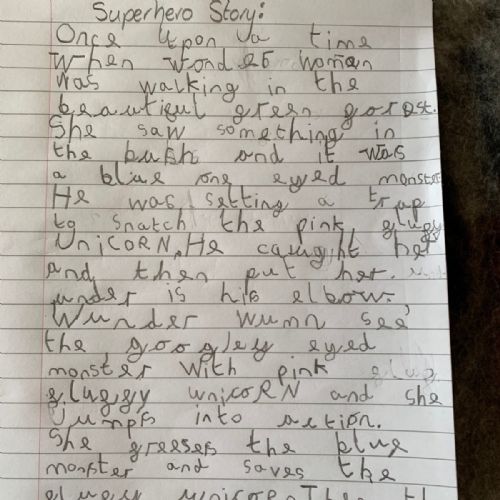 Superhero Story:
Once Upon a time
When Wonder woman
was walking in the
beautiful green forest.
She saw something in
the bush and it was
a blue one eyed monster
He was setting a trap
to snatch the pink
UNiCORN. He caught her
and then put her.
under is his elbow.
Wunder wumn see
the googley eyed
monster with pink
unicoRN and she
jumps into action.
She greeses the blue
monster and saves the
unicorn. Then